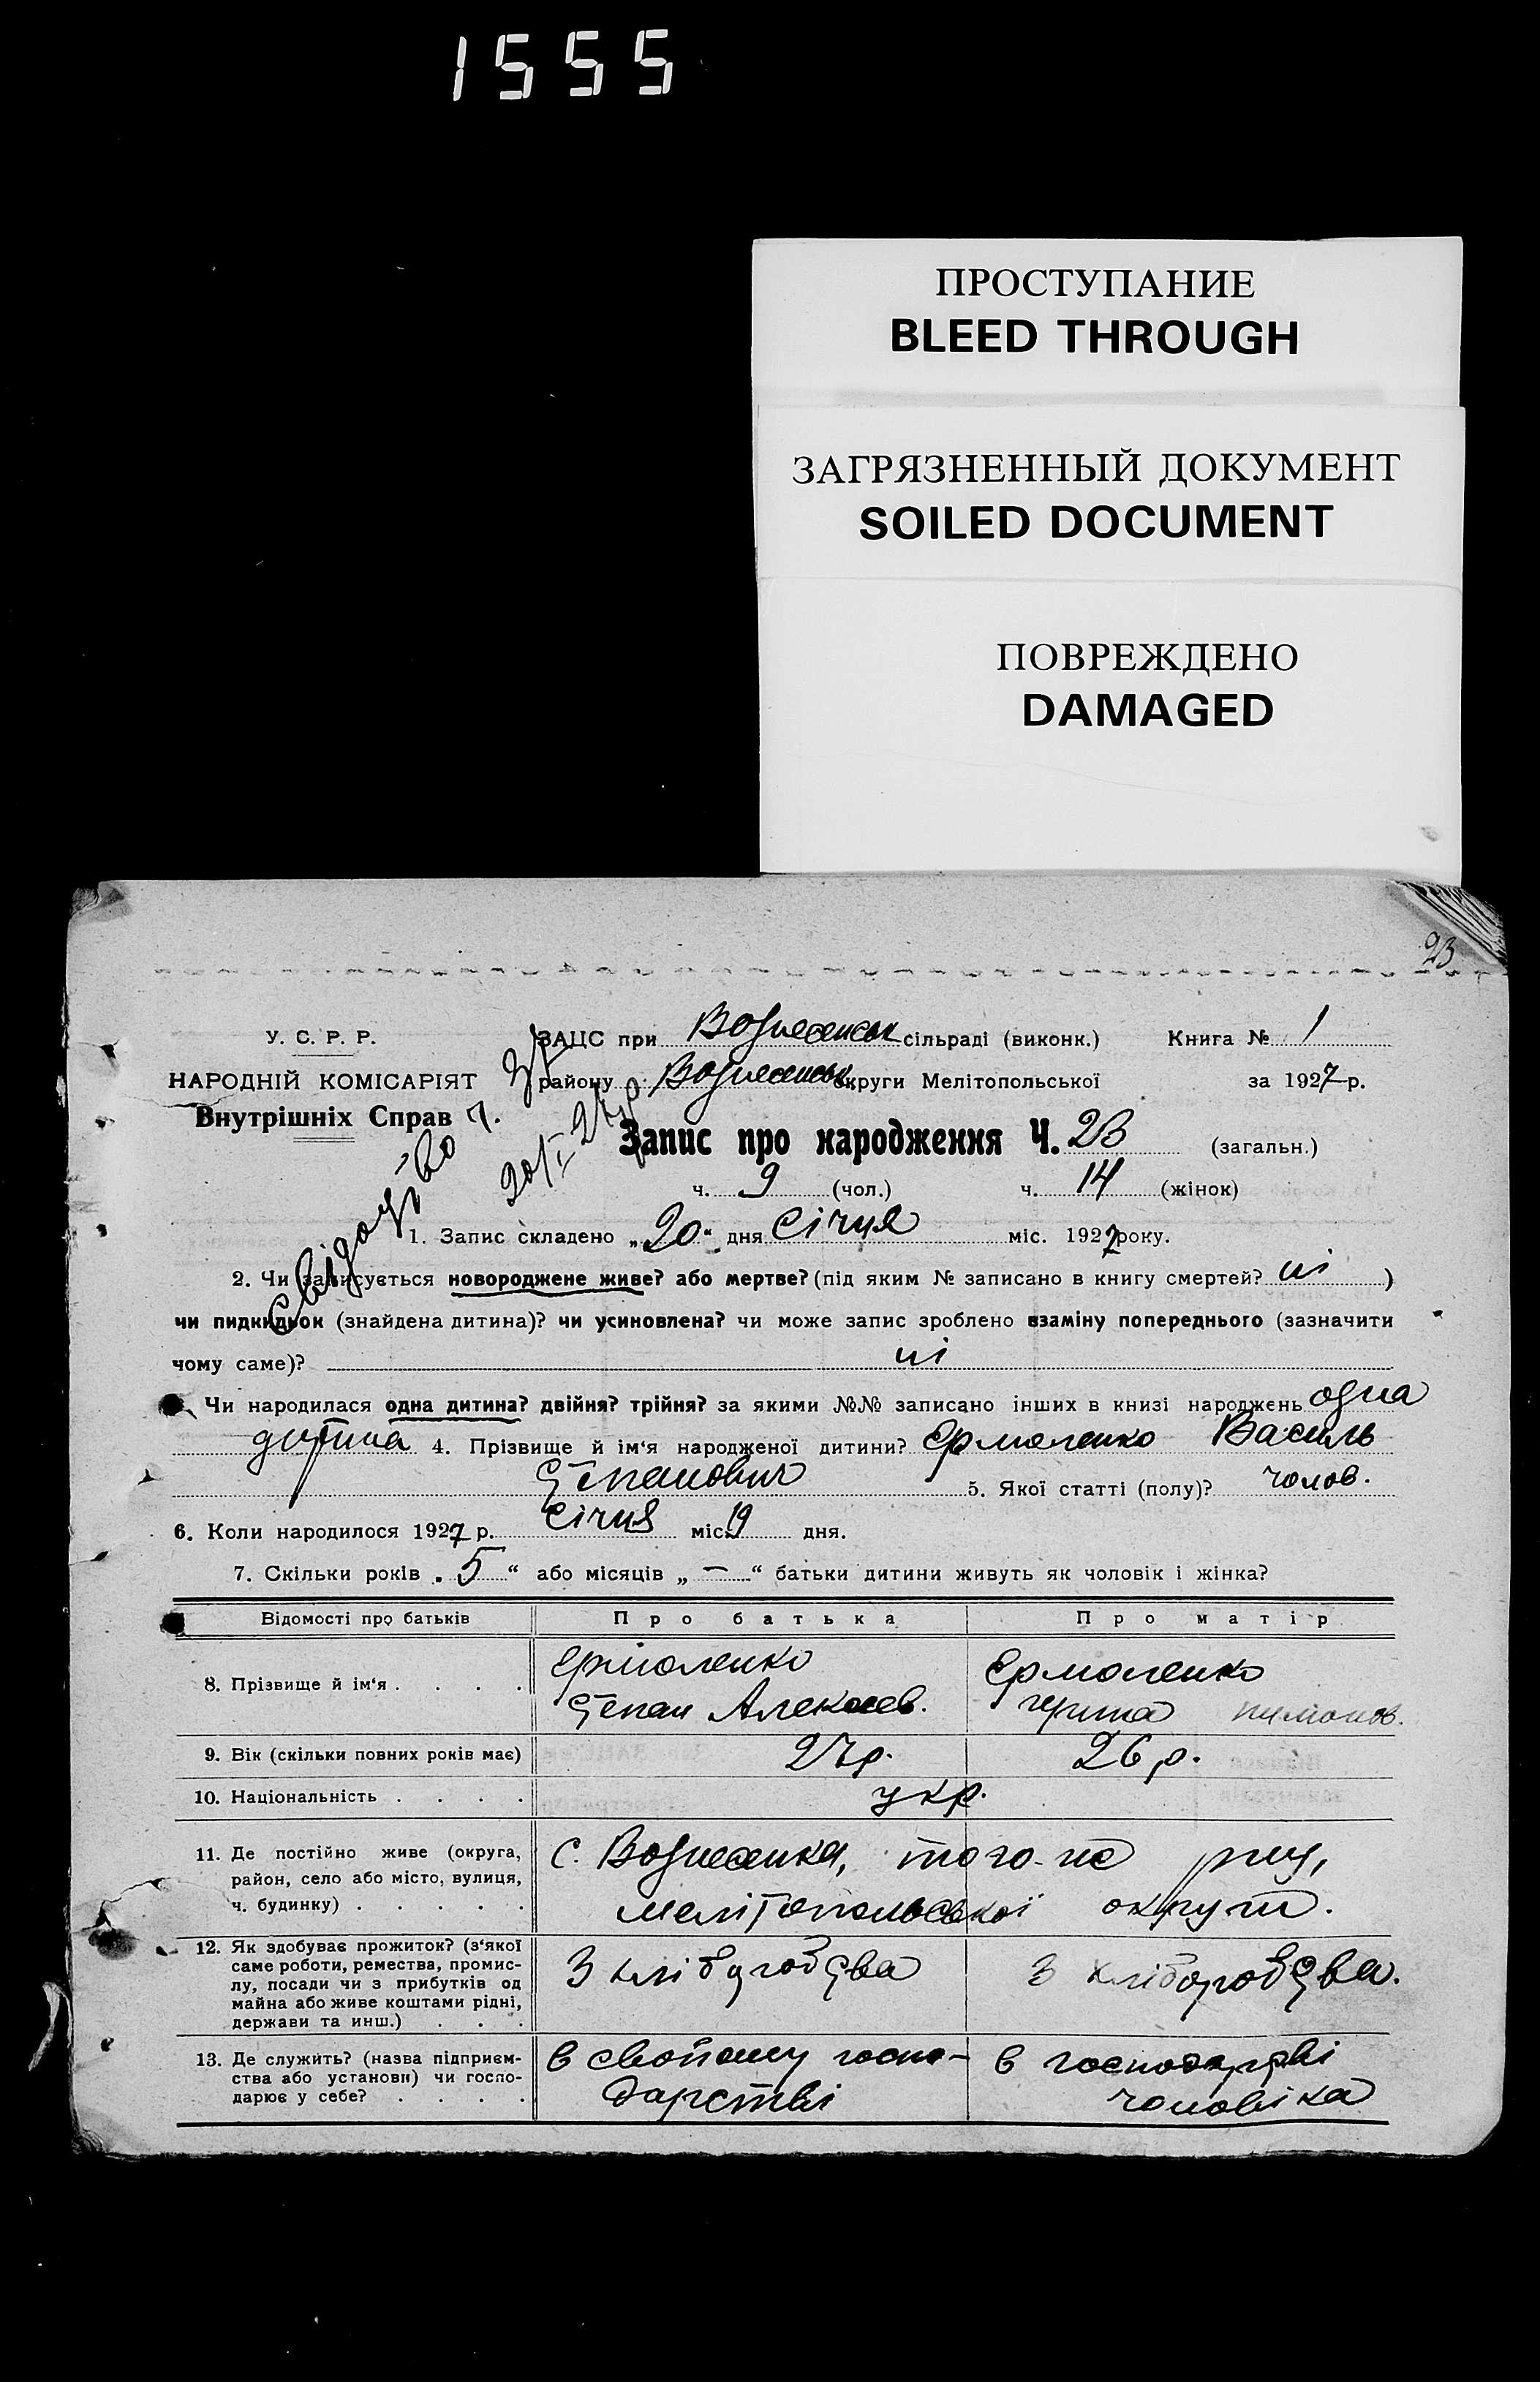 1555
ПРОСТУПАНИЕ
BLEED THROUGH
ЗАГРЯЗНЕННЫЙ ДОКУМЕНТ
SOILED DOCUMENT
ПОВРЕЖДЕНО
DAMAGED
23
У. С. Р. Р.
НАРОДНІЙ КОМІСАРІЯТ
Внутрішніх Справ
ЗАЦС при Вознесенськ сільраді (виконк.) Книга № 1
району Вознесенськ округи Мелітопольської за 1927 р.
Свідоцтво ч.
Запис про народження Ч. 23 (загальн.)
ч. 9 (чол.) ч. 14 (жінок)
1. Запис складено „20" дня Січня міс. 1927 року.
2. Чи записується новороджене живе? або мертве? (під яким № записано в книгу смертей? ні )
чи пидкидьок (знайдена дитина)? чи усиновлена? чи може запис зроблено взаміну попереднього (зазначити
чому саме)? ні
Чи народилася одна дитина? двійня? трійня? за якими №№ записано інших в книзі народжень одна
дитина 4. Прізвище й ім'я народженої дитини? Єрмоленко Василь
Степанович 5. Якої статті (полу)? чолов.
6. Коли народилося 1927 р. Січня міс. 19 дня.
7. Скільки років „5" або місяців „—" батьки дитини живуть як чоловік і жінка?
Відомості про батьків Про батька Про матір
8. Прізвище й ім'я . . . . Єрмоленко Степан Алексеев. Єрмоленко
9. Вік (скільки повних років має) 27 р. 26 р.
10. Національність . . . . укр.
11. Де постійно живе (округа,
район, село або місто, вулиця,
ч. будинку) . . . . .
с. Вознесенка, того-же
Мелітопольської округи.
12. Як здобуває прожиток? (з'якої
саме роботи, ремества, промис-
лу, посади чи з прибутків од
майна або живе коштами рідні,
держави та инш.) . . .
З хліборобства З хліборобства.
13. Де служить? (назва підприєм-
ства або установи) чи госпо-
дарює у себе? . . . .
в свойому госпо-
дарстві
в господарстві
чоловіка